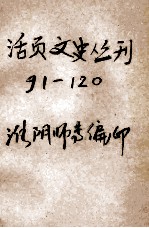 活页文史丛刊
91-120
淮阴师专编印